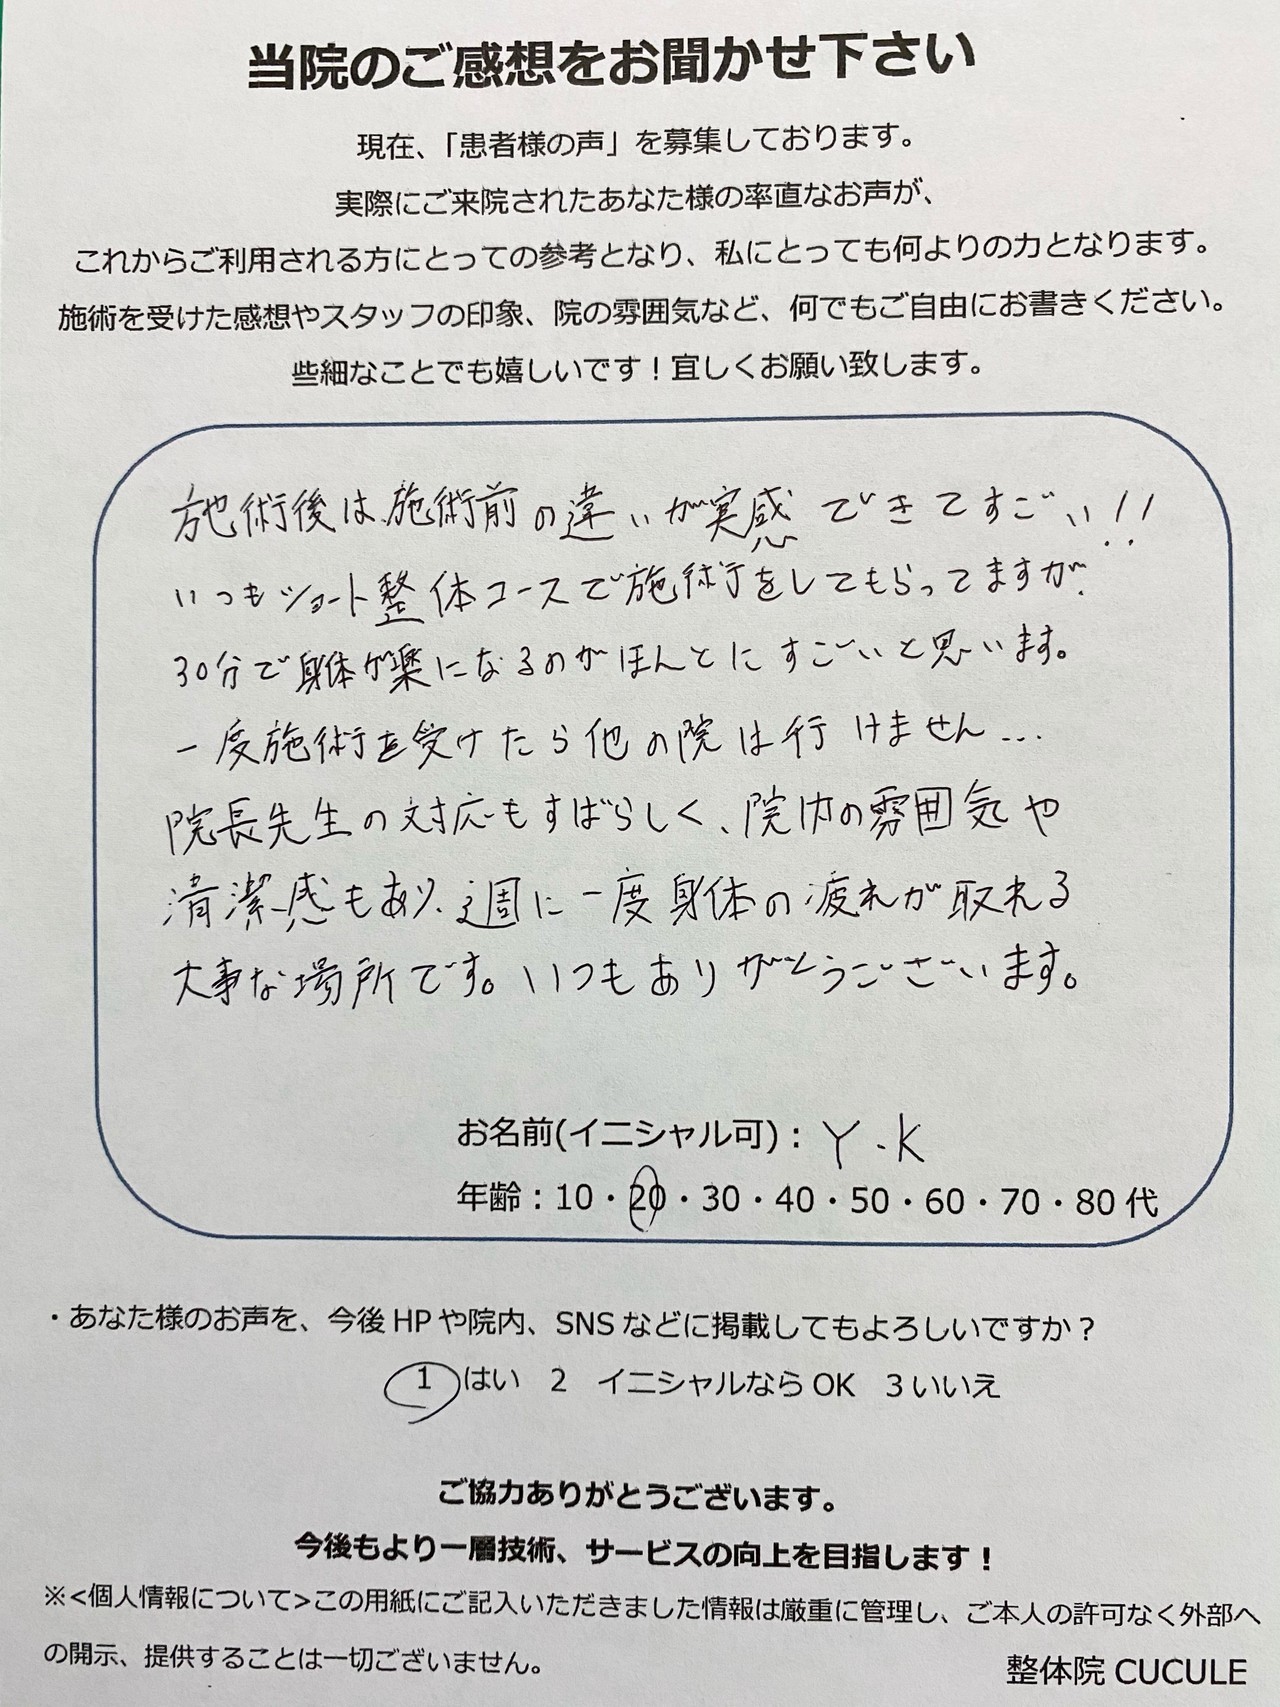 当院のご感想をお聞かせ下さい
現在、「患者様の声」を募集しております。
実際にご来院されたあなた様の率直なお声が、
これからご利用される方にとっての参考となり、私にとっても何よりの力となります。
施術を受けた感想やスタッフの印象、院の雰囲気など、何でもご自由にお書きください。
些細なことでも嬉しいです！宜しくお願い致します。
施術後は施術前の違いが実感できてすごい!!
いつもショート整体コースで施術をしてもらってますが
30分で身体が楽になるのがほんとにすごいと思います。
一度施術を受けたら他の院は行けません...
院長先生の対応もすばらしく、院内の雰囲気や
清潔感もあり、週に一度身体の疲れが取れる
大事な場所です。いつもありがとうございます。
お名前(イニシャル可)：Y.K
年齢：10・20・30・40・50・60・70・80代
・あなた様のお声を、今後HPや院内、SNSなどに掲載してもよろしいですか？
1 はい 2 イニシャルならOK 3いいえ
ご協力ありがとうございます。
今後もより一層技術、サービスの向上を目指します！
※<個人情報について>この用紙にご記入いただきました情報は厳重に管理し、ご本人の許可なく外部へ
の開示、提供することは一切ございません。
整体院 CUCULE